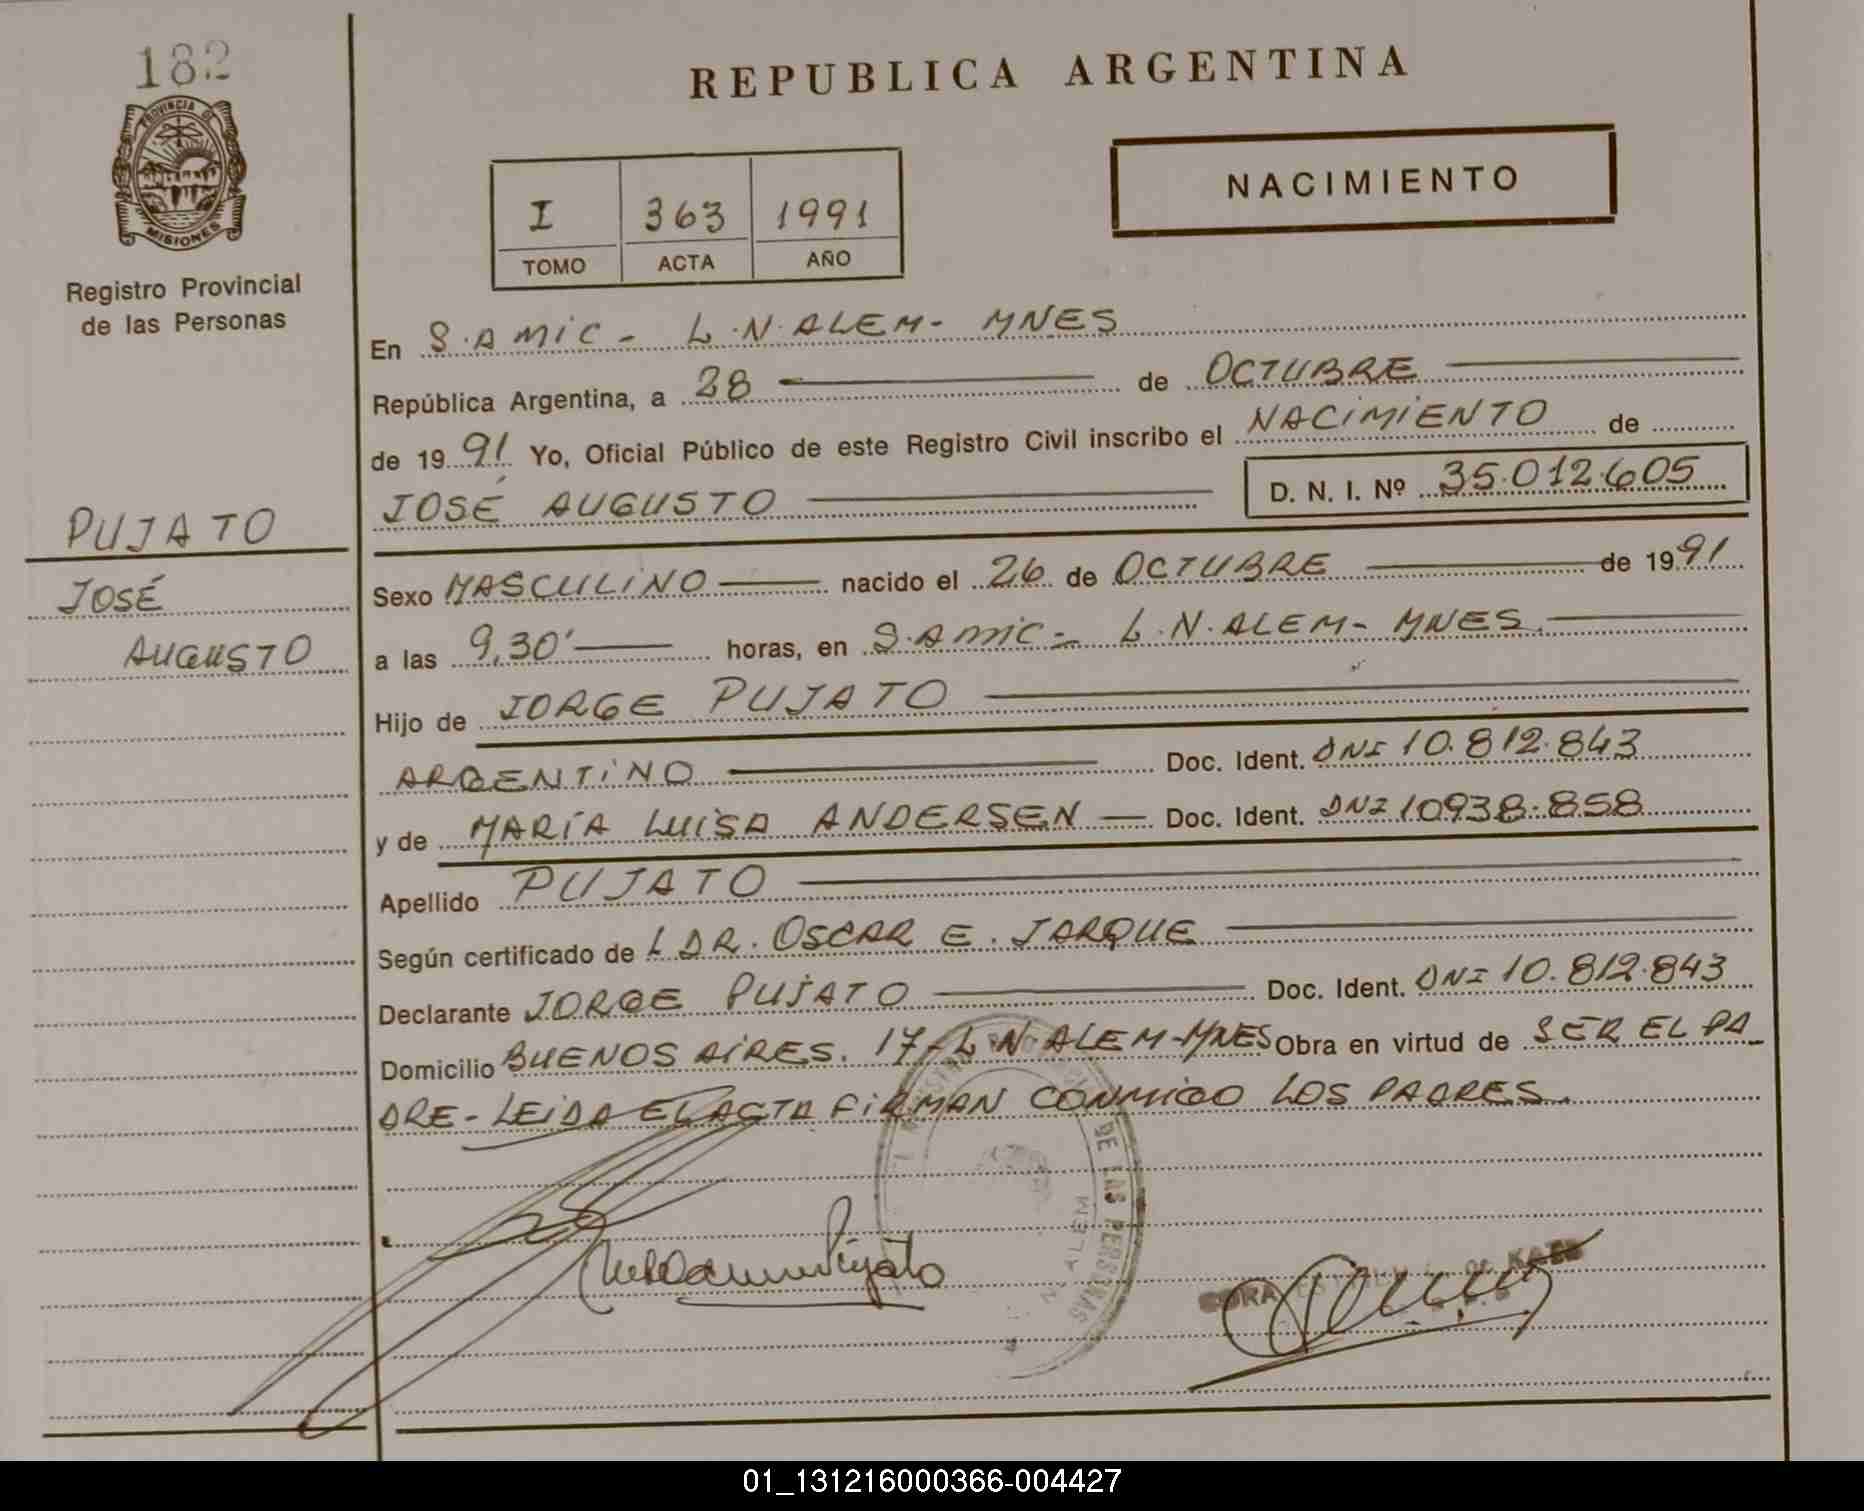 182
PROVINCIA DE
MISIONES
Registro Provincial
de las Personas
REPUBLICA ARGENTINA
NACIMIENTO
I 363 1991
TOMO ACTA AÑO
En S.AMIC - L.N.ALEM - MNES
República Argentina, a 28 de OCTUBRE
de 1991 Yo, Oficial Público de este Registro Civil inscribo el NACIMIENTO de
JOSÉ AUGUSTO D. N. I. Nº 35.012.605
PUJATO
JOSÉ
AUGUSTO
Sexo MASCULINO nacido el 26 de OCTUBRE de 1991
a las 9,30' horas, en S.AMIC - L.N.ALEM - MNES.
Hijo de JORGE PUJATO
ARGENTINO Doc. Ident. DNI 10.812.843
y de MARÍA LUISA ANDERSEN — Doc. Ident. DNI 10938.858
Apellido PUJATO
Según certificado de L DR. OSCAR E. JARQUE
Declarante JORGE PUJATO Doc. Ident. DNI 10.812.843
Domicilio BUENOS AIRES. 17 - L.N.ALEM - MNES Obra en virtud de SER EL PA
DRE - LEIDA EL ACTA FIRMAN CONMIGO LOS PADRES.
DE LAS PERSONAS
N ALEM
01_131216000366-004427